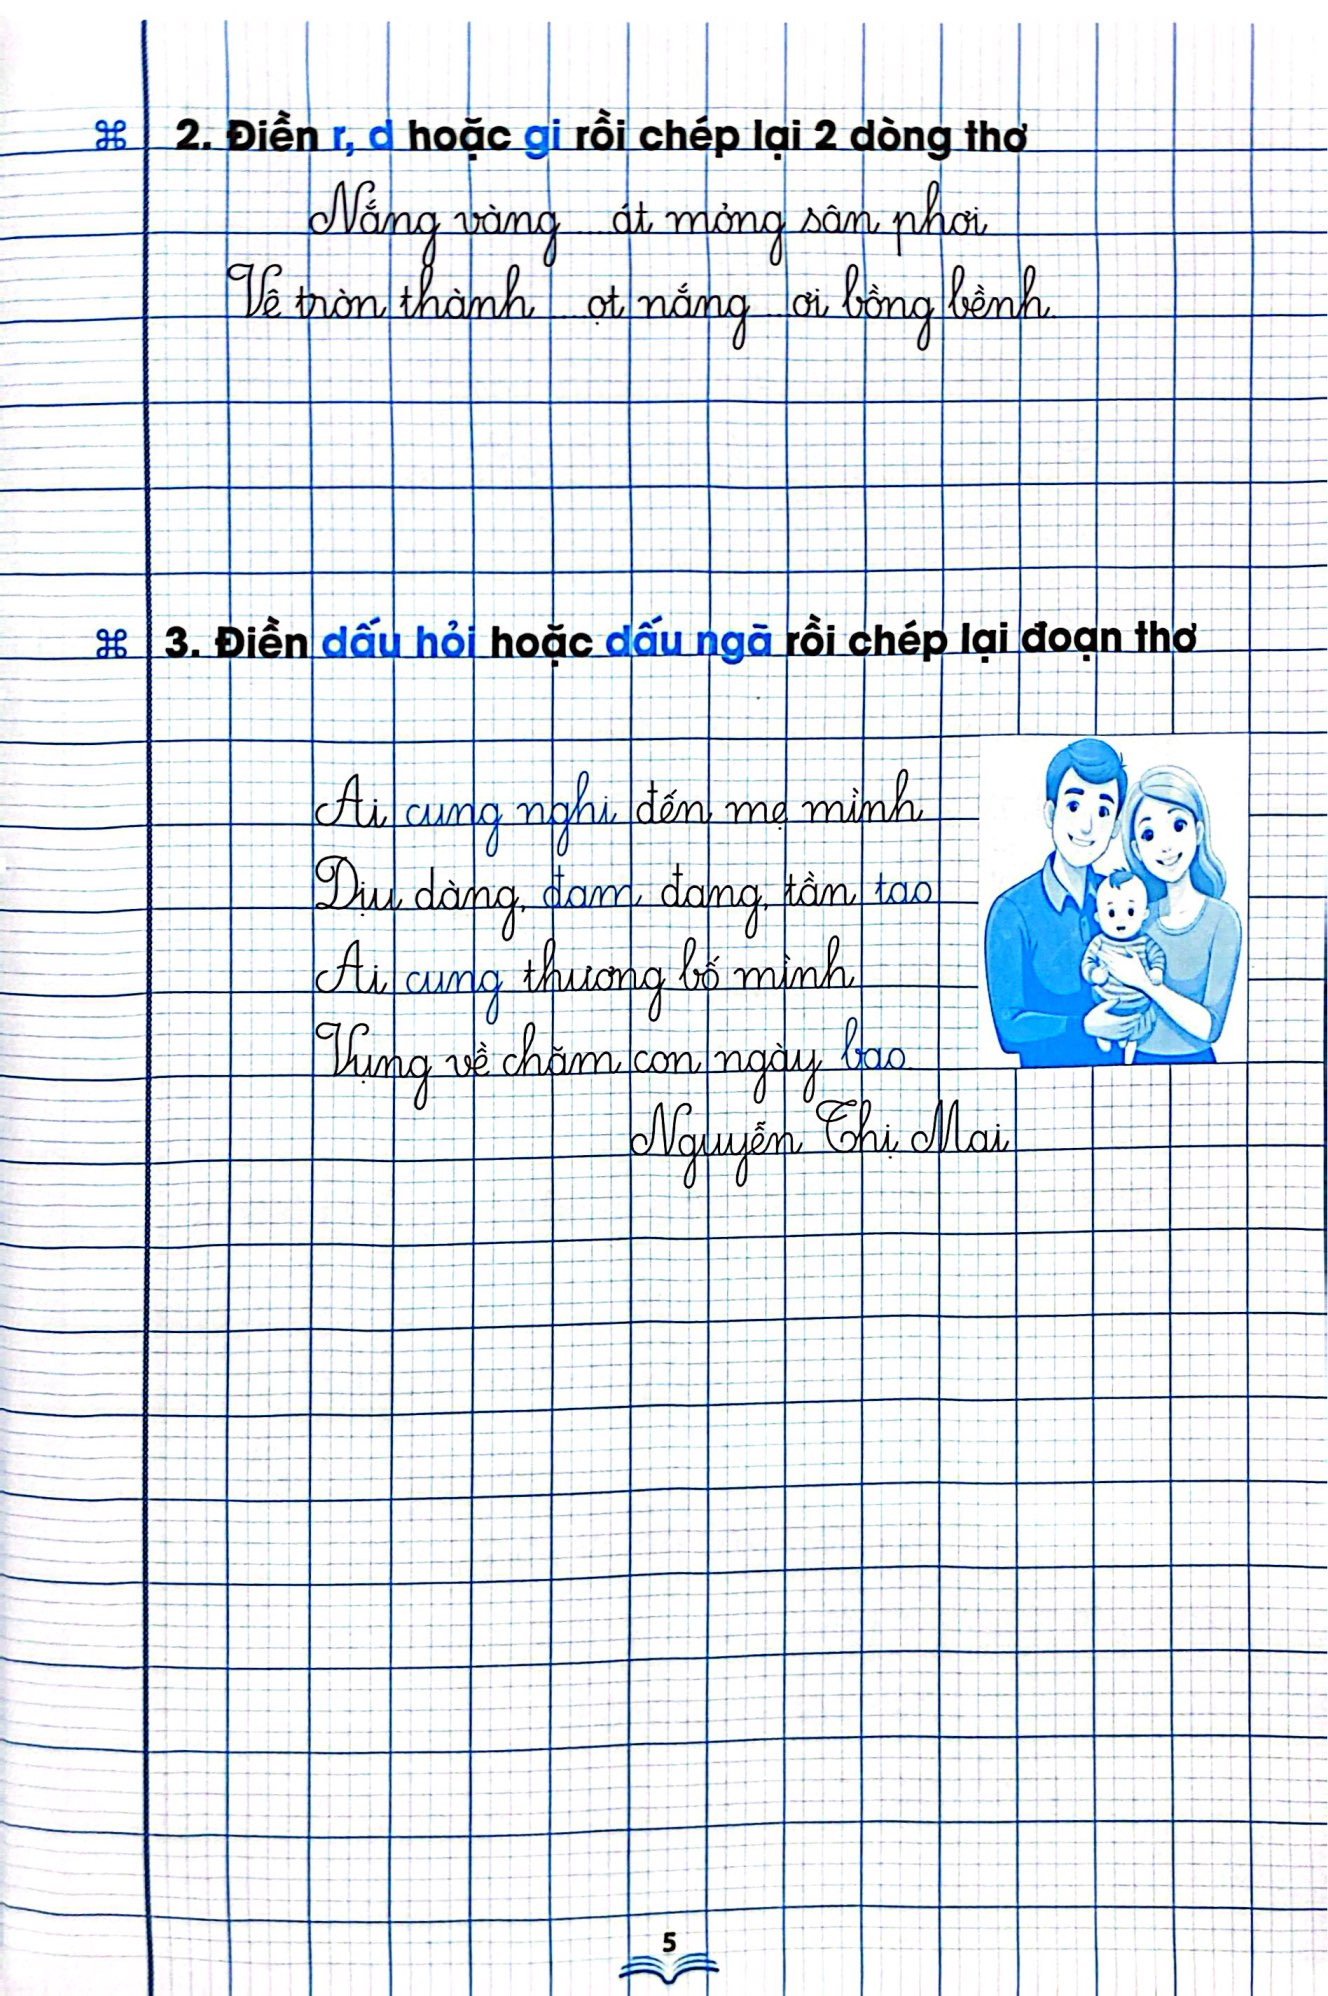 2. Điền r, d hoặc gi rồi chép lại 2 dòng thơ
Nắng vàng ...át mỏng sân phơi
Vê tròn thành ...ọt nắng ...ơi bồng bềnh.
3. Điền dấu hỏi hoặc dấu ngã rồi chép lại đoạn thơ
Ai cung nghi đến mẹ mình
Dịu dàng, đam đang, tần tao
Ai cung thương bố mình
Vụng về chăm con ngày bao.
Nguyễn Thị Mai
5